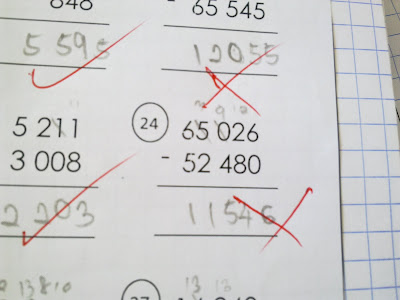 848
- 65 545
5 595
12055
5 211
3 008
2 203
24
65 026
- 52 480
11546
13 8 10